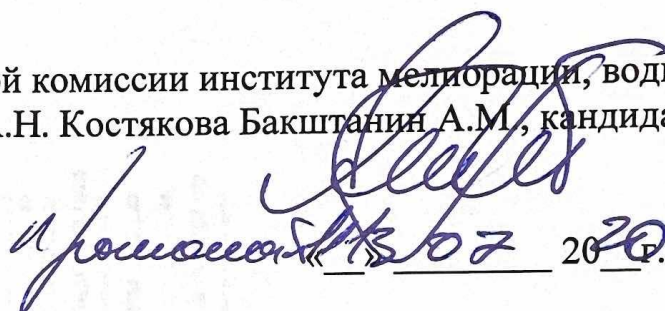 й комиссии института мелиорации, водн
.Н. Костякова Бакштанин А.М., кандида
протокол «13» 07 2020г.